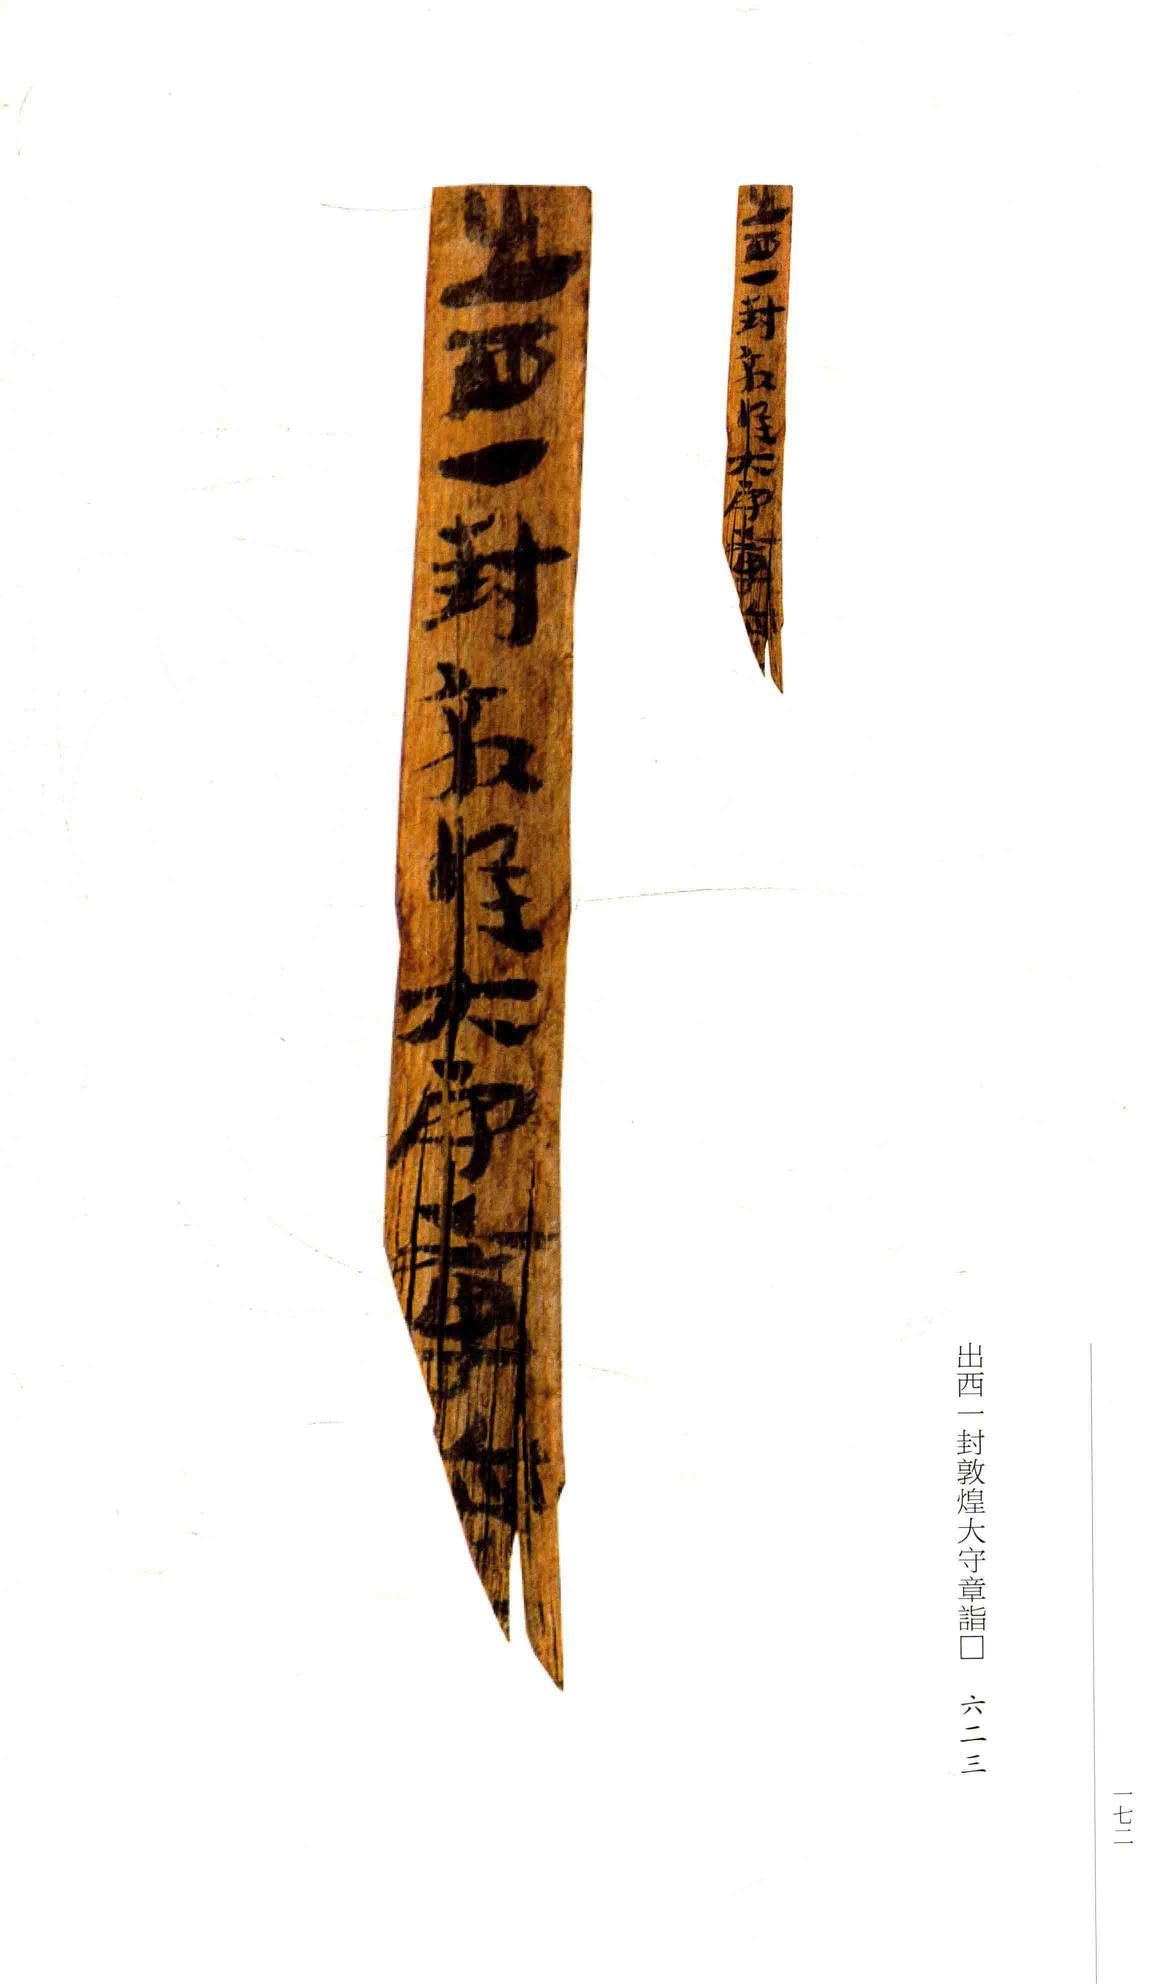 出西一封敦煌大守章詣□　六二三
一七二
出西一封敦煌大守章
出西一封敦煌大守章